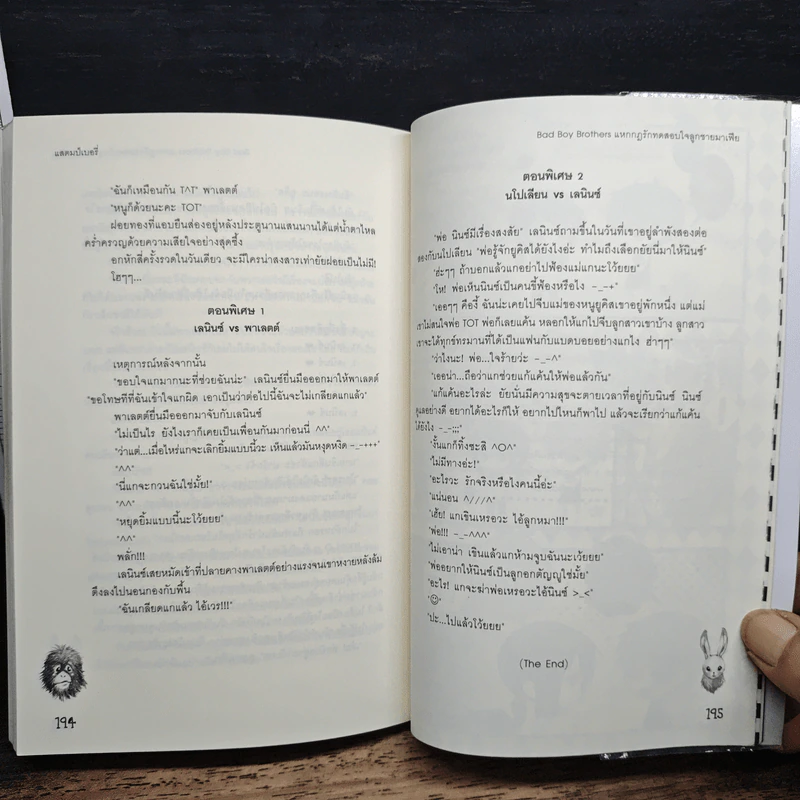 แสตมป์เบอรี่
"ฉันก็เหมือนกัน T^T" พาเลตต์
"หนูก็ด้วยนะคะ TOT"
ฝอยทองที่แอบยืนส่องอยู่หลังประตูนานแสนนานได้แต่น้ำตาไหล
คร่ำครวญด้วยความเสียใจอย่างสุดซึ้ง
อกหักสี่ครั้งรวดในวันเดียว จะมีใครน่าสงสารเท่ายัยฝอยเป็นไม่มี!
โฮๆๆ...
ตอนพิเศษ 1
เลนินซ์ vs พาเลตต์
เหตุการณ์หลังจากนั้น
"ขอบใจแกมากนะที่ช่วยฉันน่ะ" เลนินซ์ยื่นมือออกมาให้พาเลตต์
"ขอโทษทีที่ฉันเข้าใจแกผิด เอาเป็นว่าต่อไปนี้ฉันจะไม่เกลียดแกแล้ว"
พาเลตต์ยื่นมือออกมาจับกับเลนินซ์
"ไม่เป็นไร ยังไงเราก็เคยเป็นเพื่อนกันมาก่อนนี่ ^^"
"ว่าแต่...เมื่อไหร่แกจะเลิกยิ้มแบบนี้วะ เห็นแล้วมันหงุดหงิด -_-+++"
"^^"
"นี่แกจะกวนฉันใช่มั้ย!"
"^^"
"หยุดยิ้มแบบนี้นะโว้ยยย"
"^^"
พลั่ก!!!
เลนินซ์เสยหมัดเข้าที่ปลายคางพาเลตต์อย่างแรงจนเขาหงายหลังล้ม
ตึงลงไปนอนกองกับพื้น
"ฉันเกลียดแกแล้ว ไอ้เวร!!!"
194
Bad Boy Brothers แหกกฎรักทดสอบใจลูกชายมาเฟีย
ตอนพิเศษ 2
นโปเลียน vs เลนินซ์
"พ่อ นินซ์มีเรื่องสงสัย" เลนินซ์ถามขึ้นในวันที่เขาอยู่ลำพังสองต่อ
สองกับนโปเลียน "พ่อรู้จักยูคิสได้ยังไงอ่ะ ทำไมถึงเลือกยัยนี่มาให้นินซ์"
"ฮ่ะๆๆ ถ้าบอกแล้วแกอย่าไปฟ้องแม่แกนะโว้ยยย"
"โห! พ่อเห็นนินซ์เป็นคนขี้ฟ้องหรือไง -_-+"
"เออๆๆ คืองี้ ฉันน่ะเคยไปจีบแม่ของหนูยูคิสเขาอยู่พักหนึ่ง แต่แม่
เขาไม่สนใจพ่อ TOT พ่อก็เลยแค้น หลอกให้แกไปจีบลูกสาวเขาบ้าง ลูกสาว
เขาจะได้ทุกข์ทรมานที่ได้เป็นแฟนกับแบดบอยอย่างแกไง ฮ่าๆๆ"
"ว่าไงนะ! พ่อ...ใจร้ายว่ะ -_-^"
"เออน่า...ถือว่าแกช่วยแก้แค้นให้พ่อแล้วกัน"
"แก้แค้นอะไรล่ะ ยัยนั่นมีความสุขจะตายเวลาที่อยู่กับนินซ์ นินซ์
ดูแลอย่างดี อยากได้อะไรก็ให้ อยากไปไหนก็พาไป แล้วจะเรียกว่าแก้แค้น
ได้ยังไง -_-;;;"
"งั้นแกก็ทิ้งซะสิ ^O^"
"ไม่มีทางอ่ะ!"
"อะไรวะ รักจริงหรือไงคนนี้อ่ะ"
"แน่นอน ^///^"
"เฮ้ย! แกเขินเหรอวะ ไอ้ลูกหมา!!!"
"พ่อ!!! -_-^^^"
"ไม่เอาน่า เขินแล้วแกห้ามจูบฉันนะเว้ยยย"
"พ่ออยากให้นินซ์เป็นลูกอกตัญญูใช่มั้ย"
"อะไร! แกจะฆ่าพ่อเหรอวะไอ้นินซ์ >_<"
"☺"
"ปะ...ไปแล้วโว้ยยย"
(The End)
195